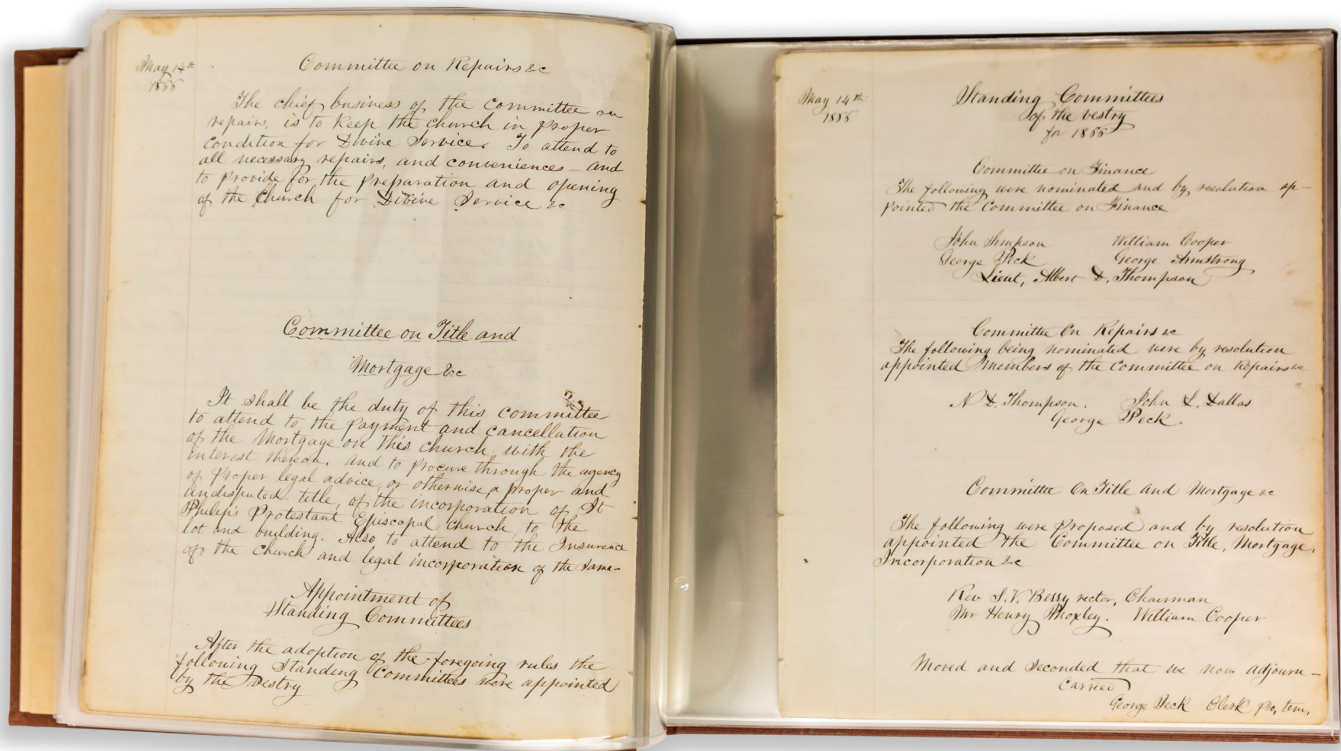 May 14th
1855
Committee on Repairs &c
The chief business of the committee on
repairs, is to keep the church in proper
condition for Divine Service. To attend to
all necessary repairs, and conveniences – and
to provide for the preparation and opening
of the Church for Divine Service &c
Committee on Title and
Mortgage &c
It shall be the duty of this committee
to attend to the payment and cancellation
of the Mortgage on this church, with the
interest thereon. And to procure through the agency
of proper legal advice, or otherwise, a proper and
undisputed title, of the incorporation of St
Philip's Protestant Episcopal church to the
lot and building. Also to attend to the Insurance
of the church and legal incorporation of the same–
Appointment of
Standing Committees
After the adoption of the foregoing rules the
following Standing Committees were appointed
by the Vestry
May 14th
1855
Standing Committees
of the vestry
for 1855
Committee on Finance
The following were nominated and by resolution ap–
pointed the Committee on Finance
John Simpson William Cooper
George Peck George Armstrong
Lieut, Albert D. Thompson
Committee On Repairs &c
The following being nominated were by resolution
appointed Members of the Committee on Repairs &c
N D. Thompson. John L. Dallas
George Peck.
Committee On Title And Mortgage &c
The following were proposed and by resolution
appointed the Committee on Title, Mortgage,
Incorporation &c
Rev S.V. Berry rector, Chairman
Mr Henry Moxley. William Cooper
Moved and Seconded that we now adjourn–
Carried
George Peck Clerk pro, tem,